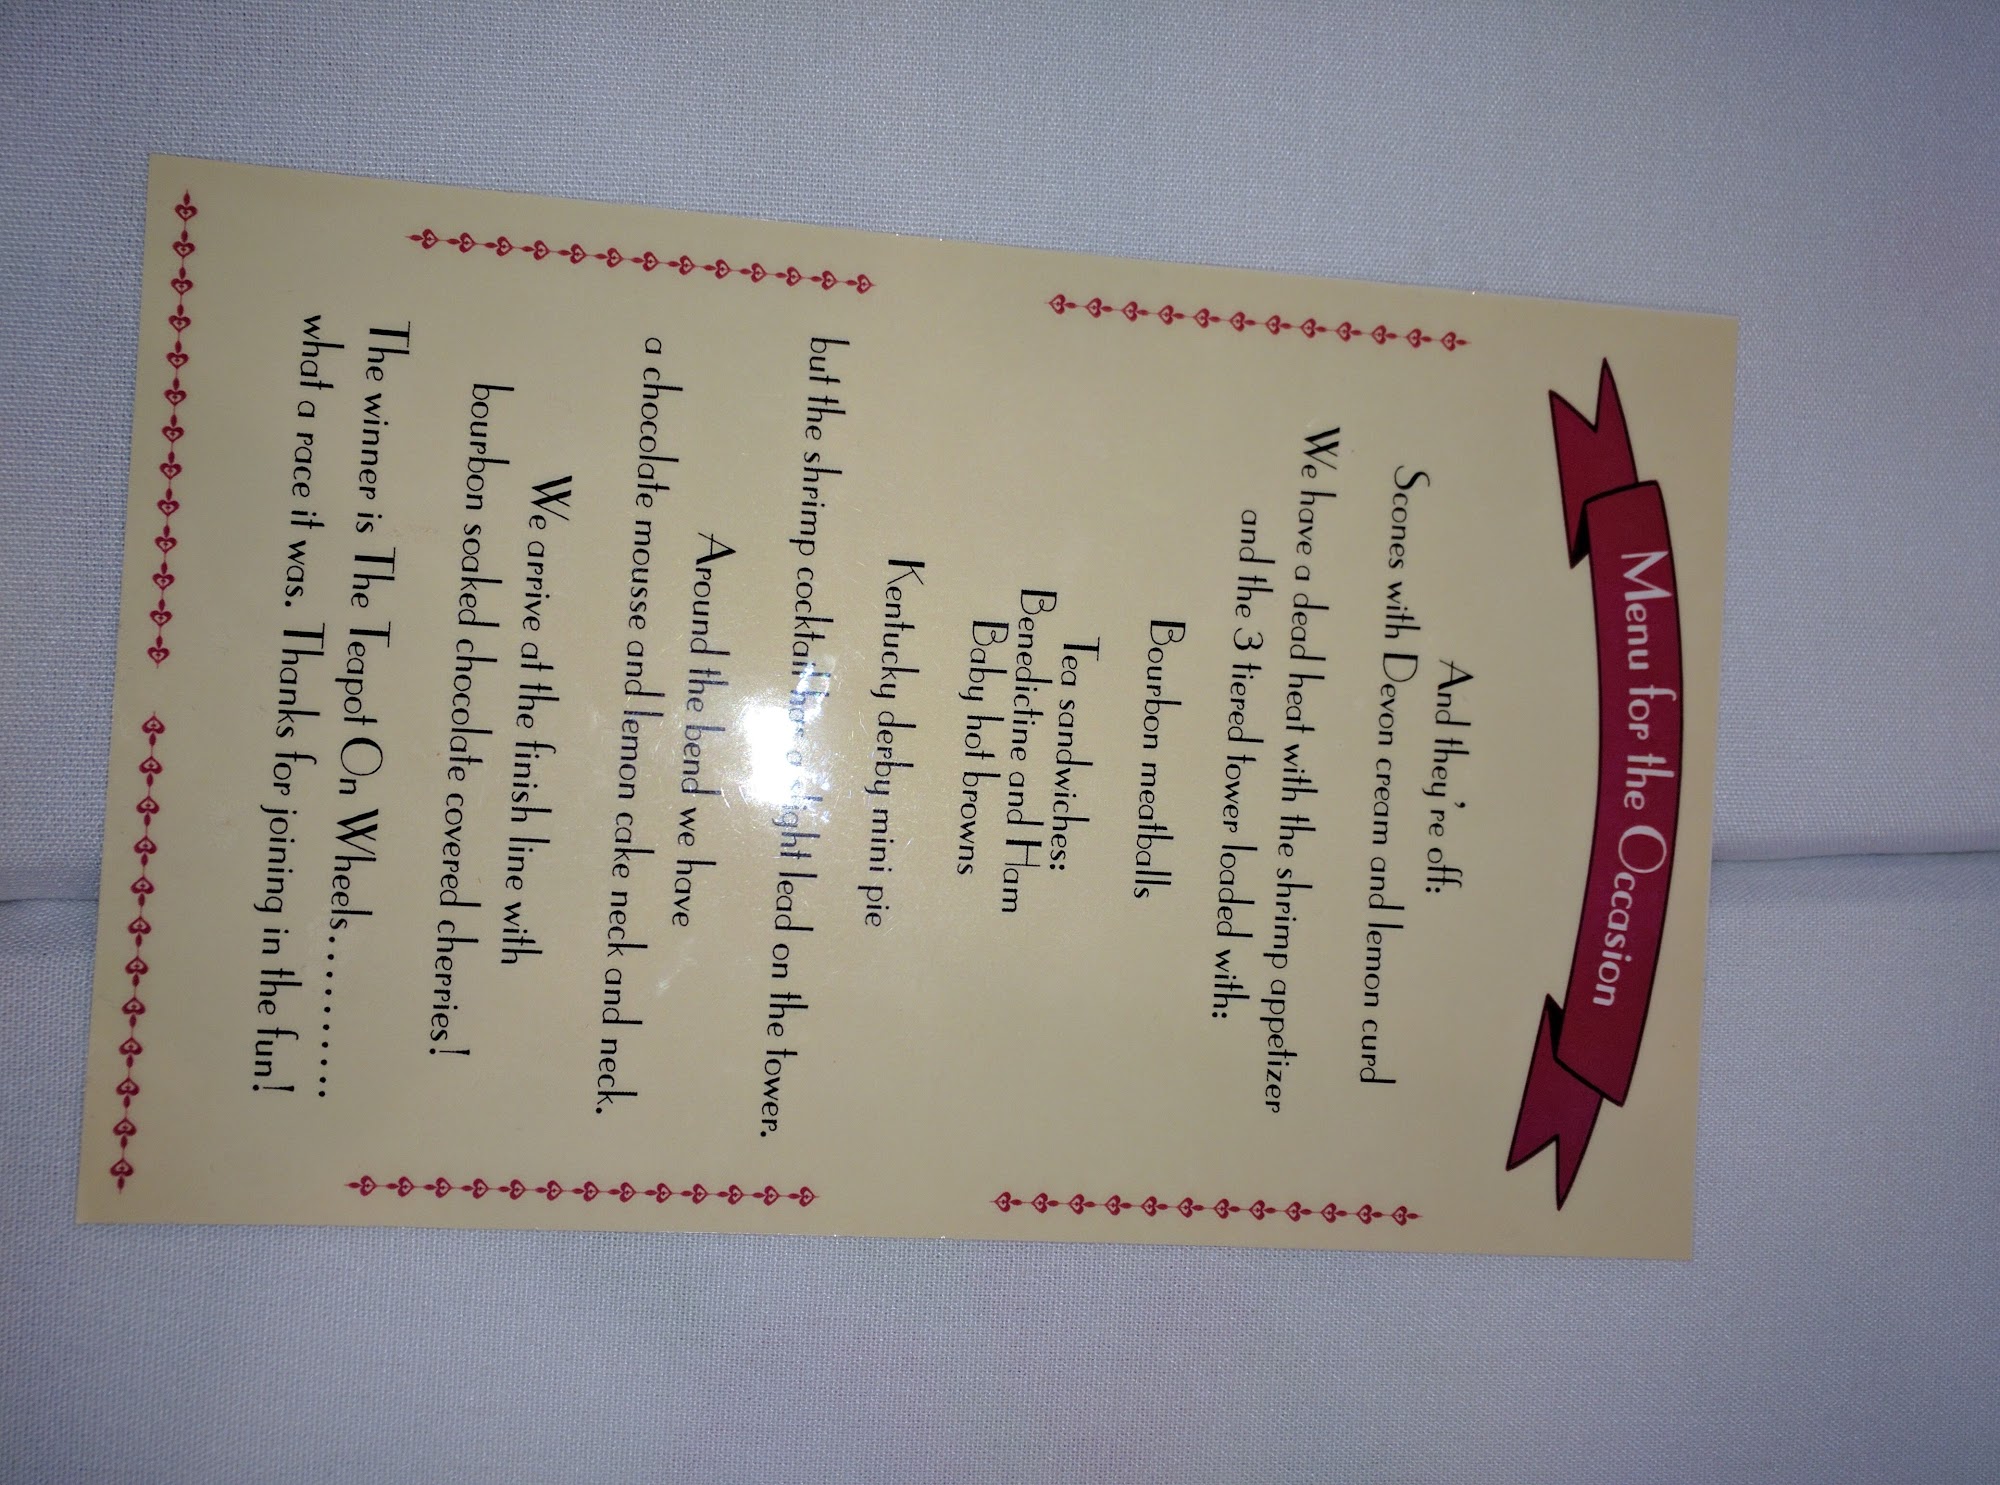 Menu for the Occasion
And they're off:
Scones with Devon cream and lemon curd
We have a dead heat with the shrimp appetizer
and the 3 tiered tower loaded with:
Bourbon meatballs
Tea sandwiches:
Benedictine and Ham
Baby hot browns
Kentucky derby mini pie
but the shrimp cocktail has a slight lead on the tower.
Around the bend we have
a chocolate mousse and lemon cake neck and neck.
We arrive at the finish line with
bourbon soaked chocolate covered cherries!
The winner is The Teapot On Wheels...........
what a race it was. Thanks for joining in the fun!